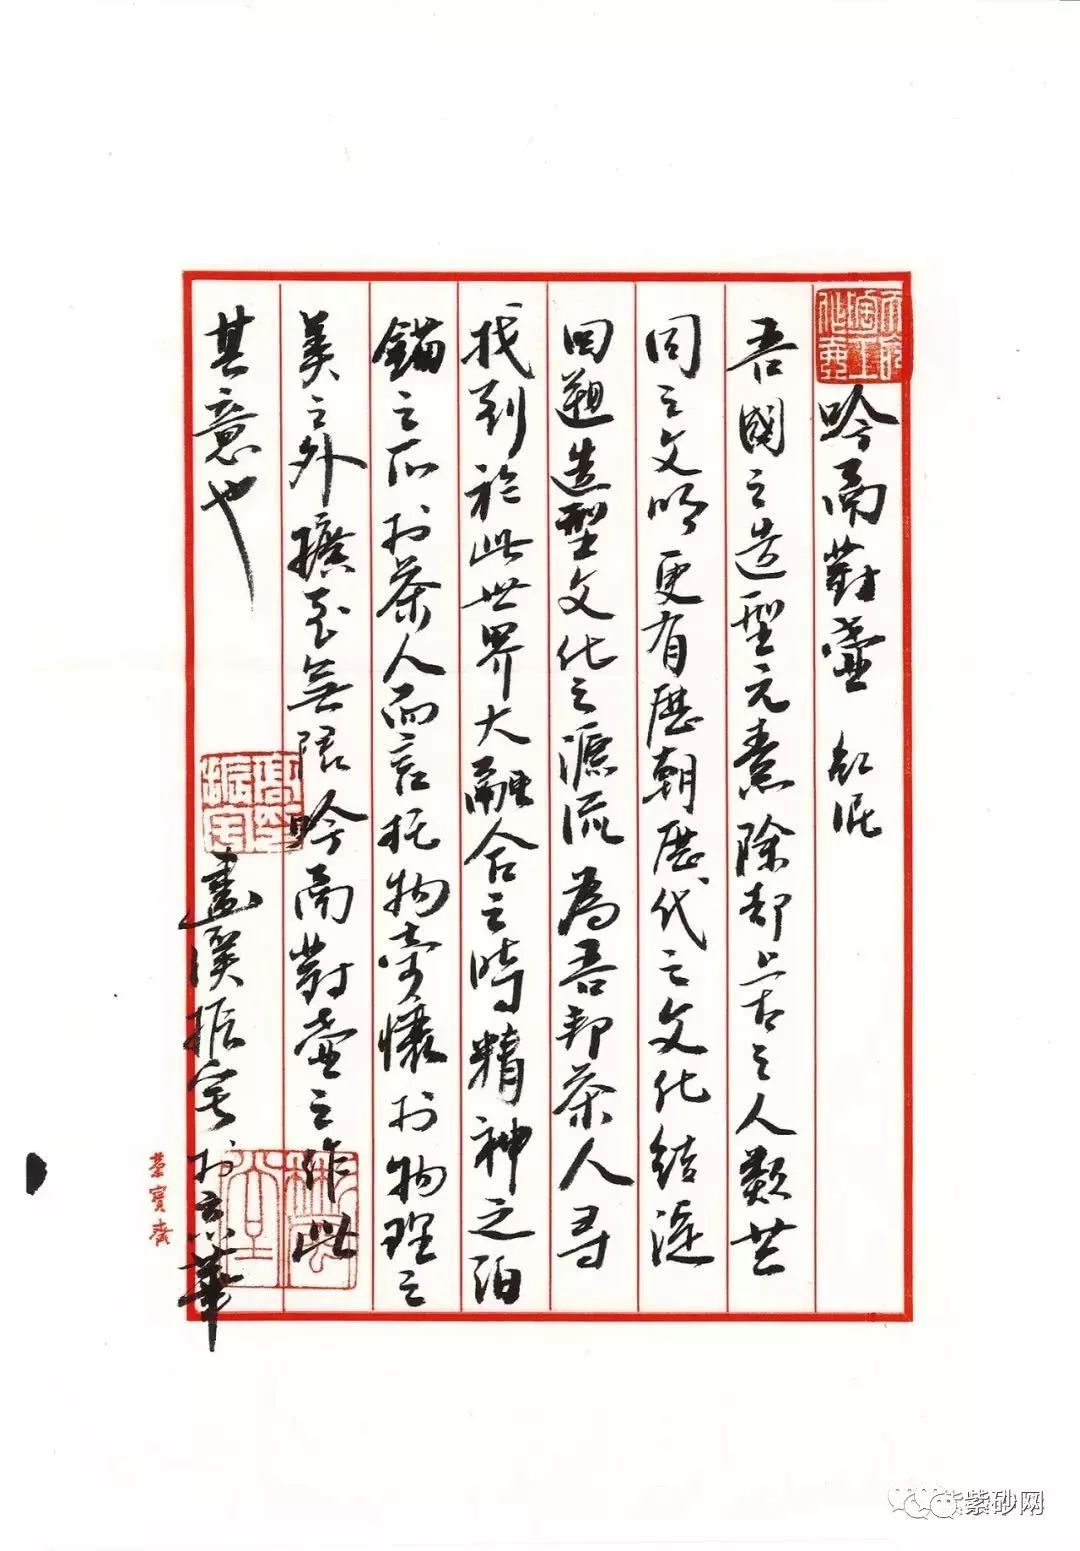 吟鬲對壺 紅泥
吾國之造型元素除却上古之人類共
同之文明更有歷朝歷代之文化結淀
回遡造型文化之源流為吾邦茶人尋
找到於此世界大融合之時精神之泊
錨之所於茶人而言托物寄懷於物理之
美之外擴至無限吟鬲對壺之作此
其意也
畫溪振宇於京華
榮寶齋
紫砂网